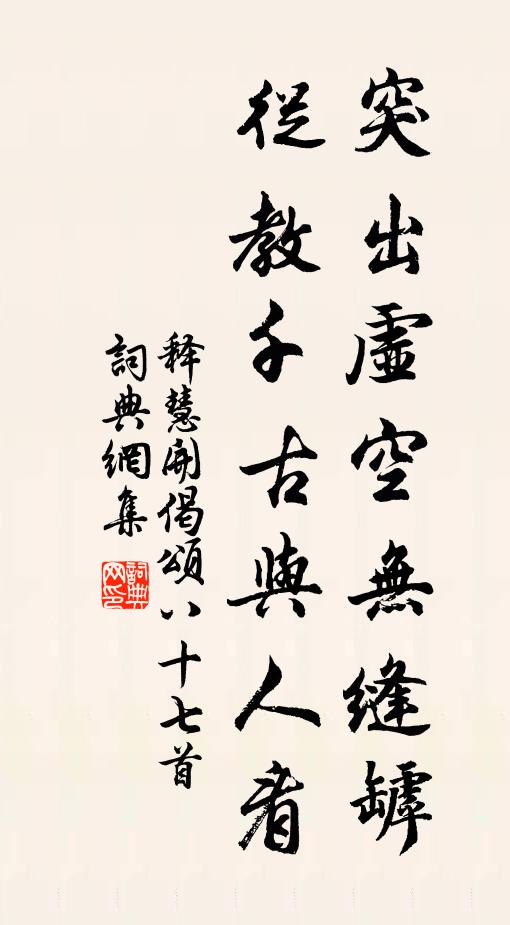 突出虛空無縫罅
從教千古與人看
释慧開偈頌八十七首
詞典網集
詞典
网印